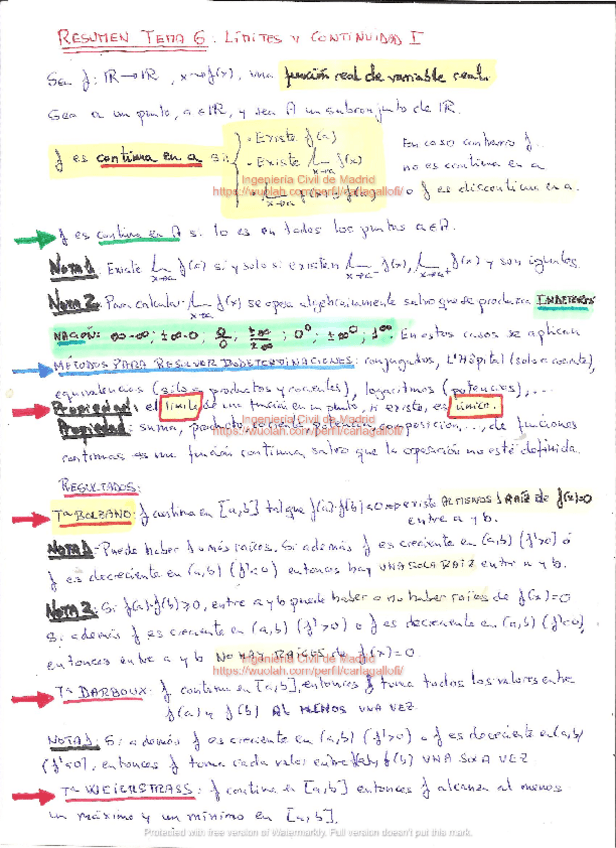 RESUMEN TEMA 6: LÍMITES Y CONTINUIDAD I
Sea f: ℝ→ℝ, x→f(x), una función real de variable real.
Sea a un punto, a∈ℝ, y sea A un subconjunto de ℝ.
f es continua en a si:
- Existe f(a)
- Existe lim x→a f(x)
- lim x→a f(x) = f(a)
En caso contrario f
no es continua en a
o f es discontinua en a.
Ingeniería Civil de Madrid
https://wuolah.com/perfil/carlagallofi/
f es continua en A si lo es en todos los puntos a∈A.
Nota 1: Existe lim x→a f(x) si y solo si existen lim x→a⁻ f(x), lim x→a⁺ f(x) y son iguales.
Nota 2: Para calcular lim x→a f(x) se opera algebraicamente salvo que se produzca INDETERMI-
NACIÓN: ∞-∞; ±∞·0; 0/0; ±∞/±∞; 0⁰; ±∞⁰; 1^∞. En estos casos se aplican
MÉTODOS PARA RESOLVER INDETERMINACIONES: conjugados, L'Hôpital (solo cociente),
equivalencias (sólo productos y cocientes), logaritmos (potencias),...
Propiedad: el límite de una función en un punto, si existe, es único.
Ingeniería Civil de Madrid
https://wuolah.com/perfil/carlagallofi/
Propiedad: suma, producto, cociente, potencia, composición,..., de funciones
continuas es una función continua, salvo que la operación no esté definida.
RESULTADOS:
Tª BOLZANO: f continua en [a,b] tal que f(a)·f(b)<0 ⇒ existe AL MENOS 1 RAÍZ de f(x)=0
entre a y b.
Nota 1: Puede haber 1 o más raíces. Si además f es creciente en (a,b) (f'>0) ó
f es decreciente en (a,b) (f'<0) entonces hay UNA SOLA RAÍZ entre a y b.
Nota 2: Si f(a)·f(b)>0, entre a y b puede haber o no haber raíces de f(x)=0
Si además f es creciente en (a,b) (f'>0) o f es decreciente en (a,b) (f'<0),
entonces entre a y b NO HAY RAÍCES de f(x)=0.
Ingeniería Civil de Madrid
https://wuolah.com/perfil/carlagallofi/
Tª DARBOUX: f continua en [a,b], entonces f toma todos los valores entre
f(a) y f(b) AL MENOS UNA VEZ.
NOTA 1: Si además f es creciente en (a,b) (f'>0) o f es decreciente en (a,b)
(f'<0), entonces f toma cada valor entre f(a) y f(b) UNA SOLA VEZ.
Tª WEIERSTRASS: f continua en [a,b] entonces f alcanza al menos
un máximo y un mínimo en [a,b].
Protected with free version of Watermarkly. Full version doesn't put this mark.